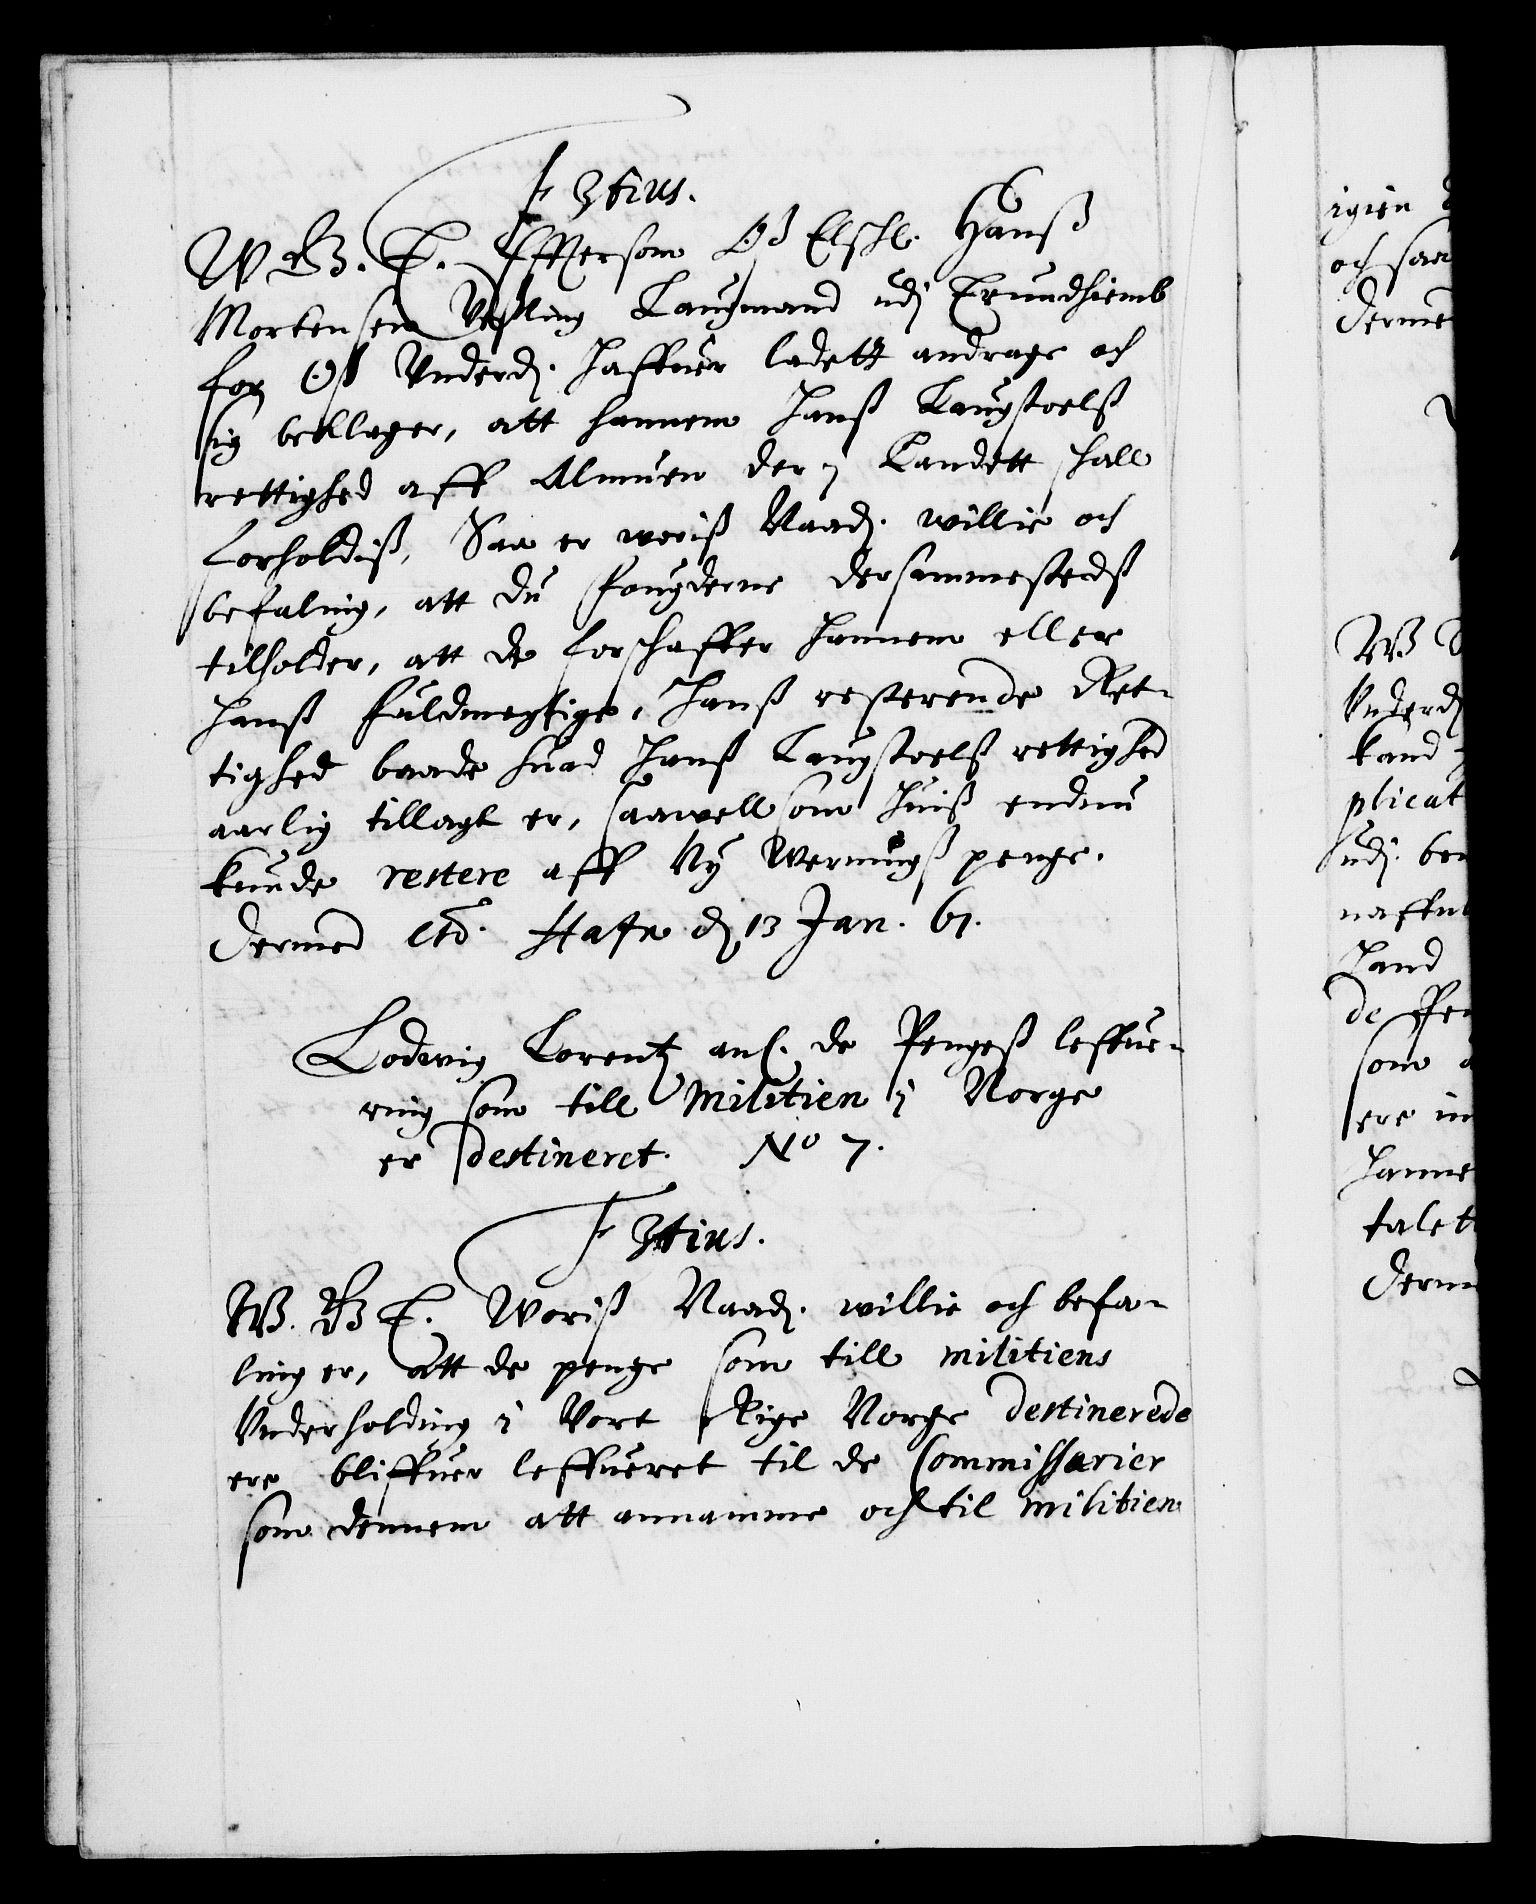 F 3tius.
W. G. T. Effterson Oß Elschl. Hanß
Mortensen Vesling Laugmand udj Trundhiemb
for Oß Underd. haffuer ladett andrage och
sig beklager, att hannem hanß Laugstoelß
rettighed aff Almuen der i Landett schall
forholdiß, Saa er woriß Naad. willie och
befaling, att du fougderne dersammestedß
tilholder, att de forschaffer hannem eller
hanß fuldmegtige, hanß resterende Ret-
tighed baade huad hanß Laugstoelß rettighed
aarlig tillagt er, saawell som huiß endnu
kunde restere aff Ny Wernungß penge.
Dermed etc. Hafn d 13 Jan. 61.
Lodwig Lorentz anl. de Pengeß leffue-
ring som till Militien i Norge
er destineret. No 7.
F 3tius.
W. G. T. Woriß Naad. willie och befa-
ling er, att de penge som till militiens
Underholding i Vort Rige Norge destinerede
ere bliffuer leffueret til de Commissarier
som dennem att annamme och til militien
igien
och saa
Derme
W.
Underd
kand
plicat
udj. be
naffn
hand
de Pe
som
ere in
hanne
talet
Derm